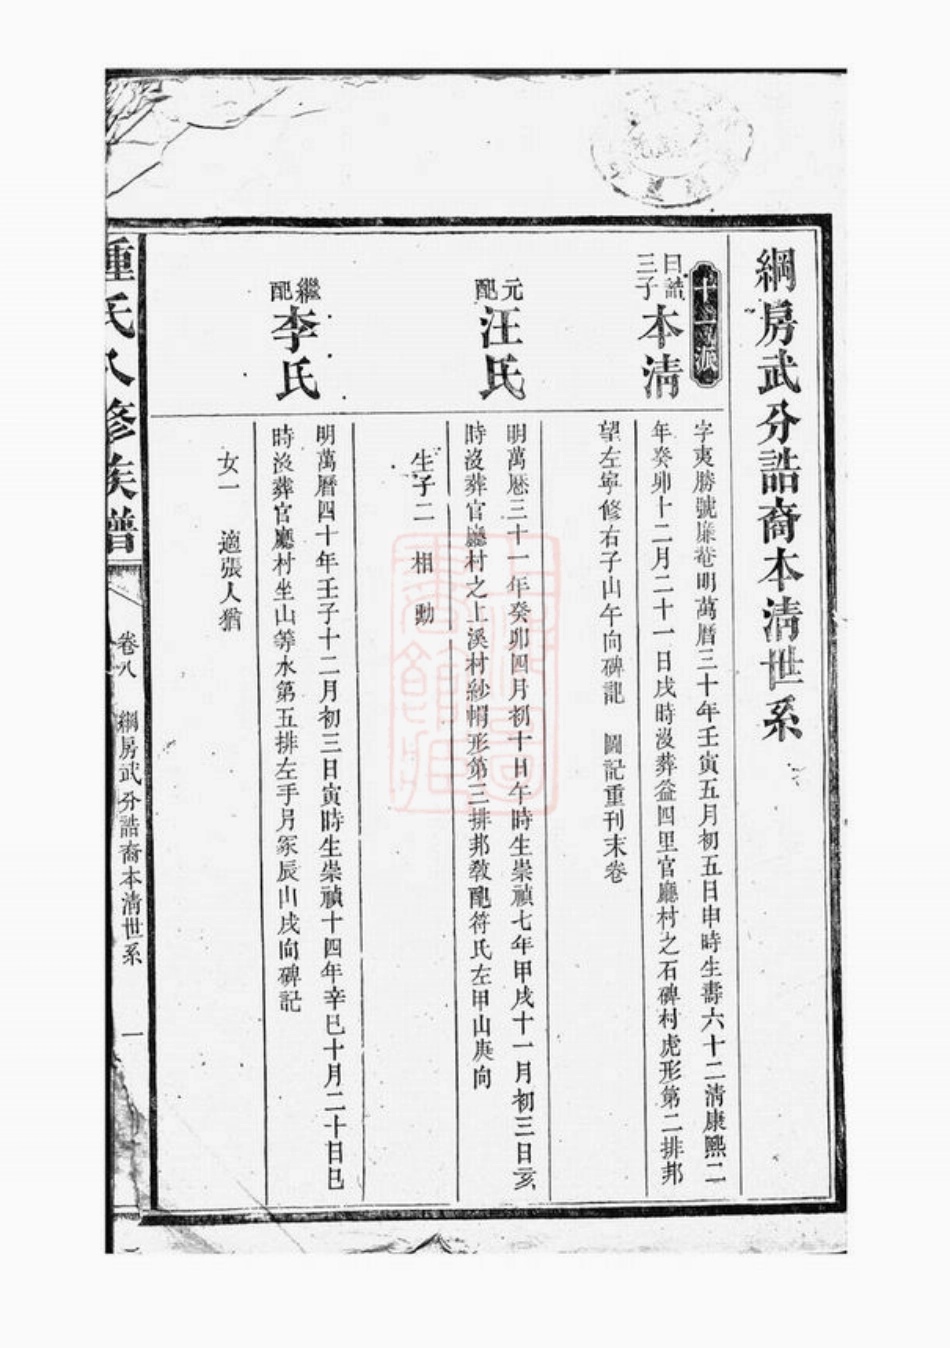 綱房武分誥裔本清世系
十一派
曰誥
三子
本清
字夷勝號廉菴明萬曆三十年壬寅五月初五日申時生壽六十二清康熙二
年癸卯十二月二十一日戌時沒葬益四里官廳村之石碑村虎形第二排邦
望左寧修右子山午向碑記 圖記重刊末卷
元
配
汪氏
明萬曆三十一年癸卯四月初十日午時生崇禎七年甲戌十一月初三日亥
時沒葬官廳村之上溪村紗帽形第三排邦教配符氏左甲山庚向
生子二 相 勳
繼
配
李氏
明萬曆四十年壬子十二月初三日寅時生崇禎十四年辛巳十月二十日巳
時沒葬官廳村坐山等水第五排左手另冢辰山戌向碑記
女一 適張人猶
氏八修族譜
卷八 綱房武分誥裔本清世系 一